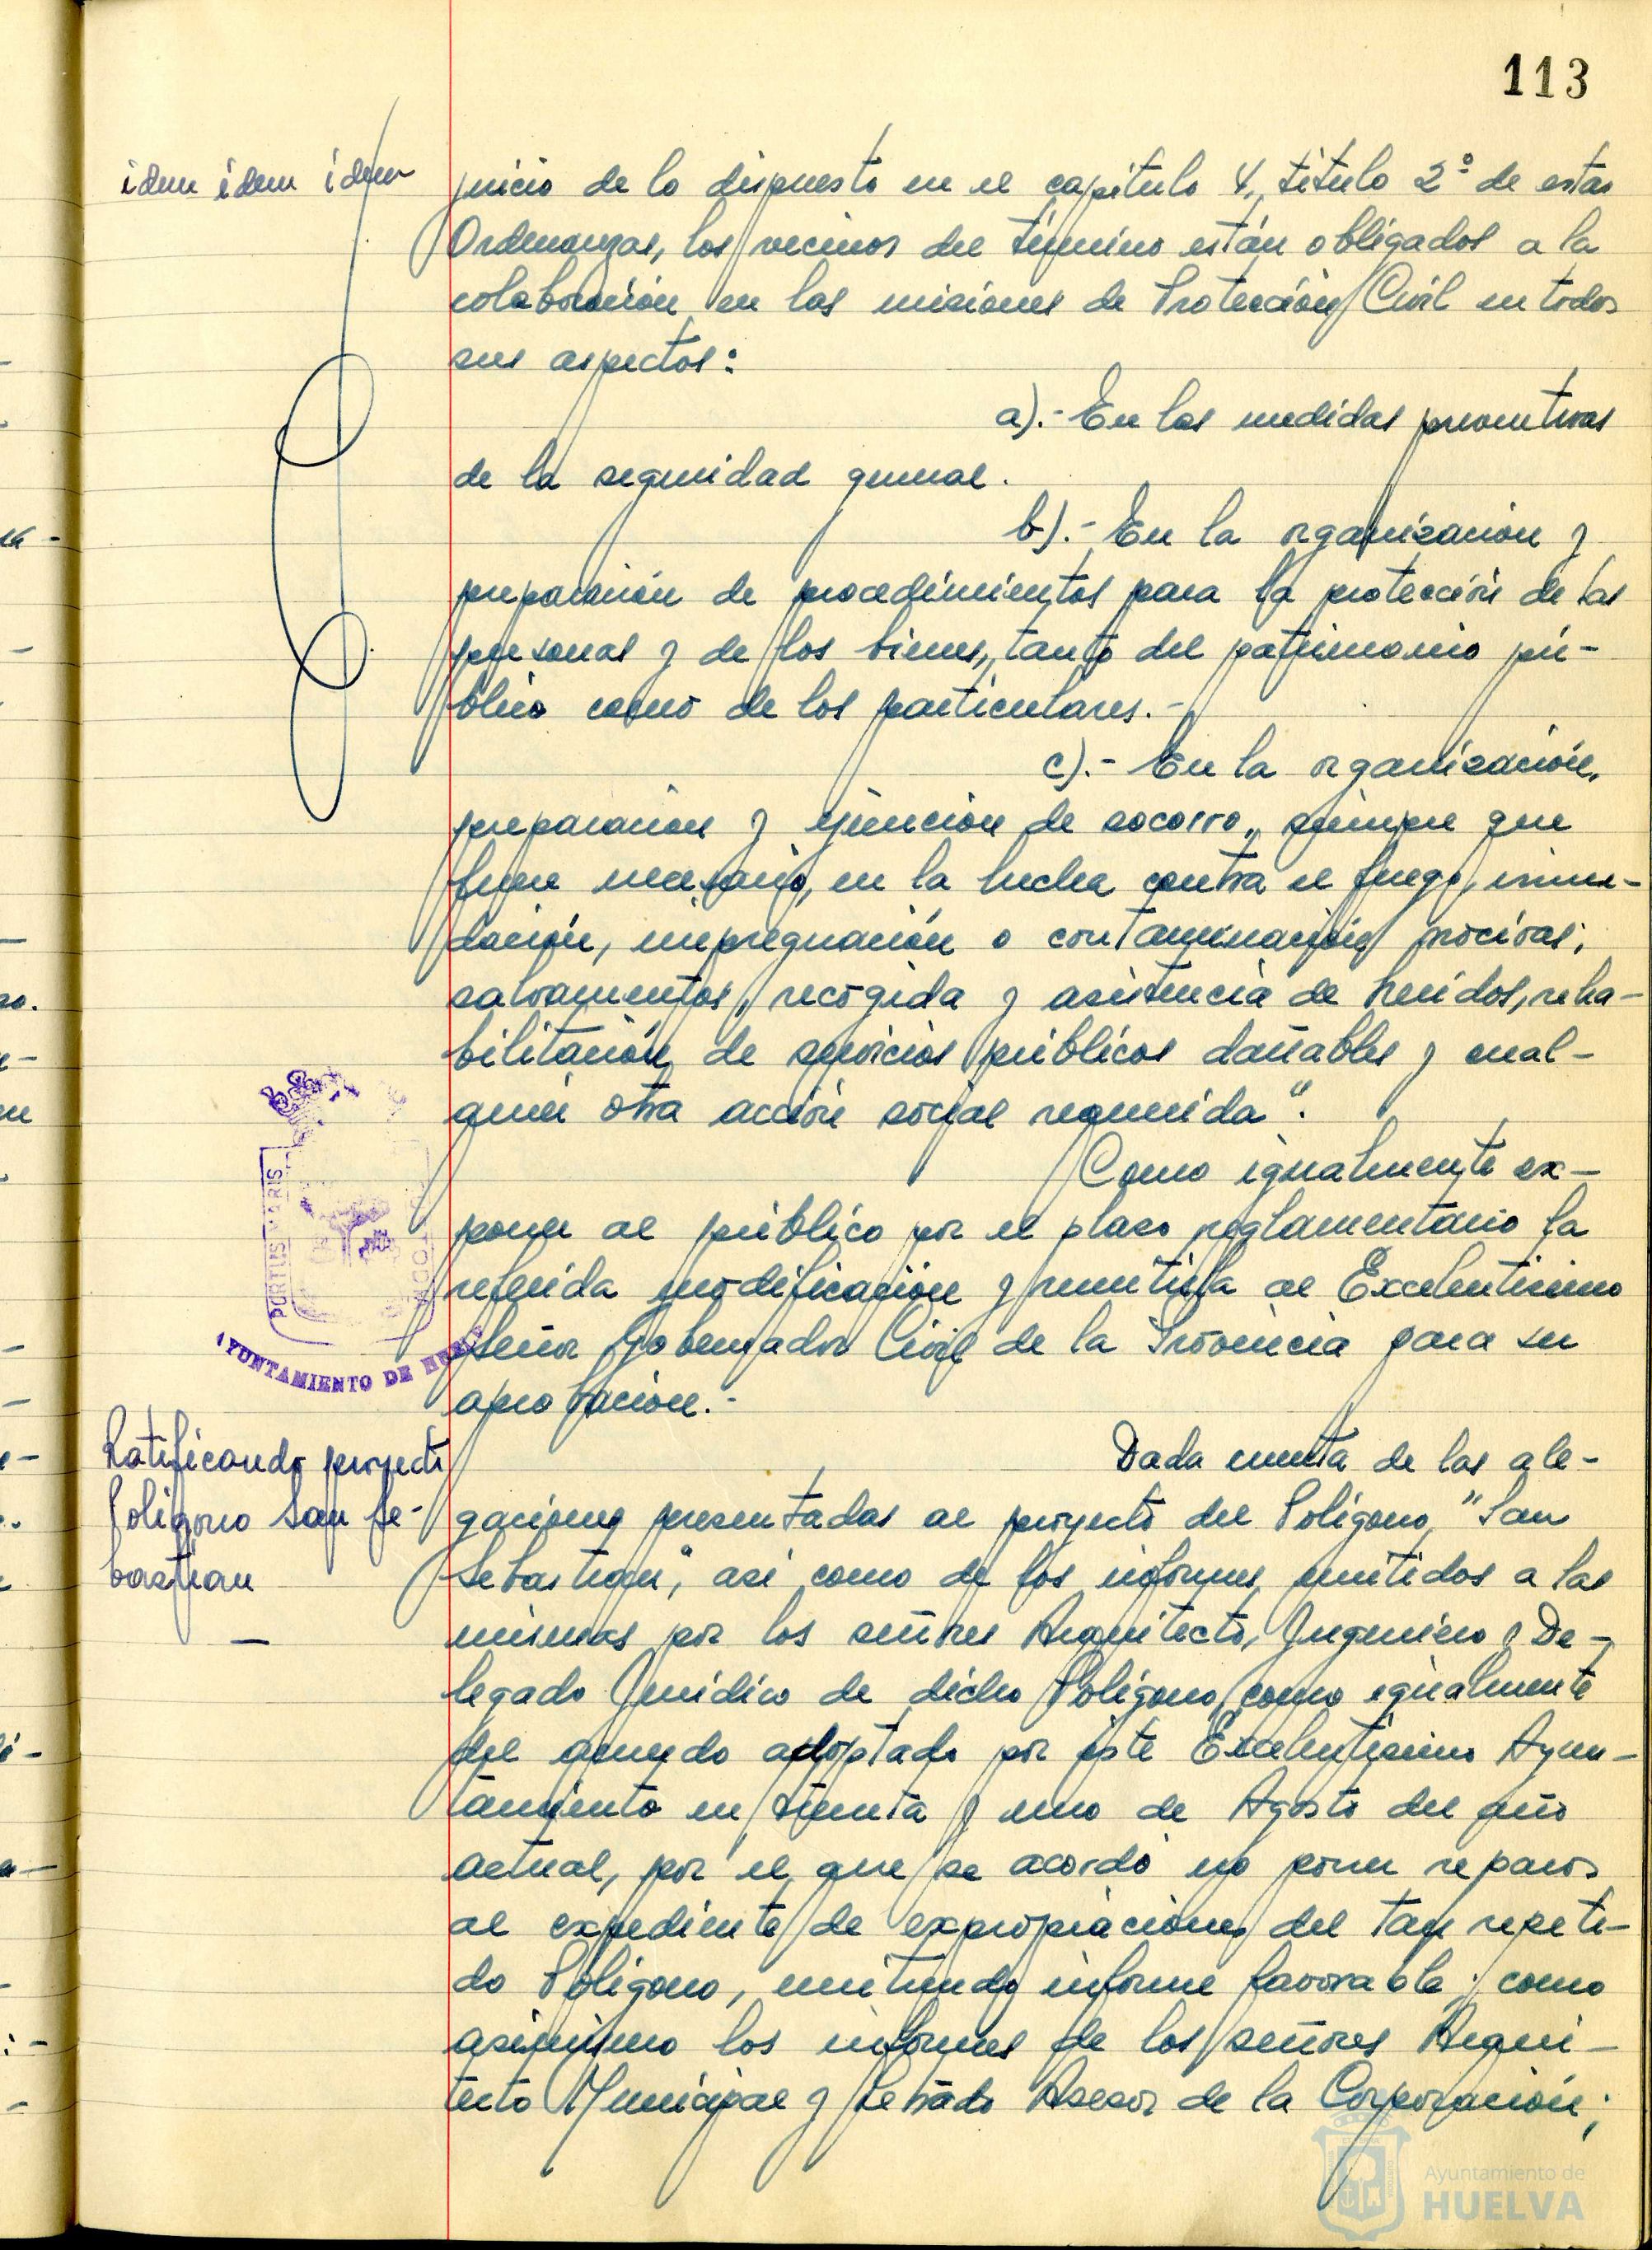 113
idem idem idem
juicio de lo dispuesto en el capítulo 4, título 2º de estas
Ordenanzas, los vecinos del término están obligados a la
colaboración en las misiones de Protección Civil en todos
sus aspectos:
a).- En las medidas preventivas
de la seguridad general.
b).- En la organización y
preparación de procedimientos para la protección de las
personas y de los bienes, tanto del patrimonio pú-
blico como de los particulares.-
c).- En la organización,
preparación y ejecución de socorro, siempre que
fuere necesario, en la lucha contra el fuego, inun-
dación, impregnación o contaminación nocivas;
salvamentos, recogida y asistencia de heridos, reha-
bilitación de servicios públicos dañables y cual-
quier otra acción social requerida".
Como igualmente ex-
poner al público por el plazo reglamentario la
referida modificación y remitirla al Excelentísimo
Señor Gobernador Civil de la Provincia para su
aprobación.-
PORTUS MARIS
AYUNTAMIENTO DE HUELVA
Ratificando proyecto
Polígono San Se-
bastian
Dada cuenta de las ale-
gaciones presentadas al proyecto del Polígono "San
Sebastian", asi como de los informes emitidos a las
mismas por los señores Arquitecto, Ingeniero y De-
legado Jurídico de dicho Polígono, como igualmente
del acuerdo adoptado por éste Excelentísimo Ayun-
tamiento en treinta y uno de Agosto del año
actual, por el que se acordó no poner reparos
al expediente de expropiaciones del tan repeti-
do Polígono, emitiendo informe favorable; como
asimismo los informes de los señores Arqui-
tecto Municipal y Letrado Asesor de la Corporación;
Ayuntamiento de
HUELVA